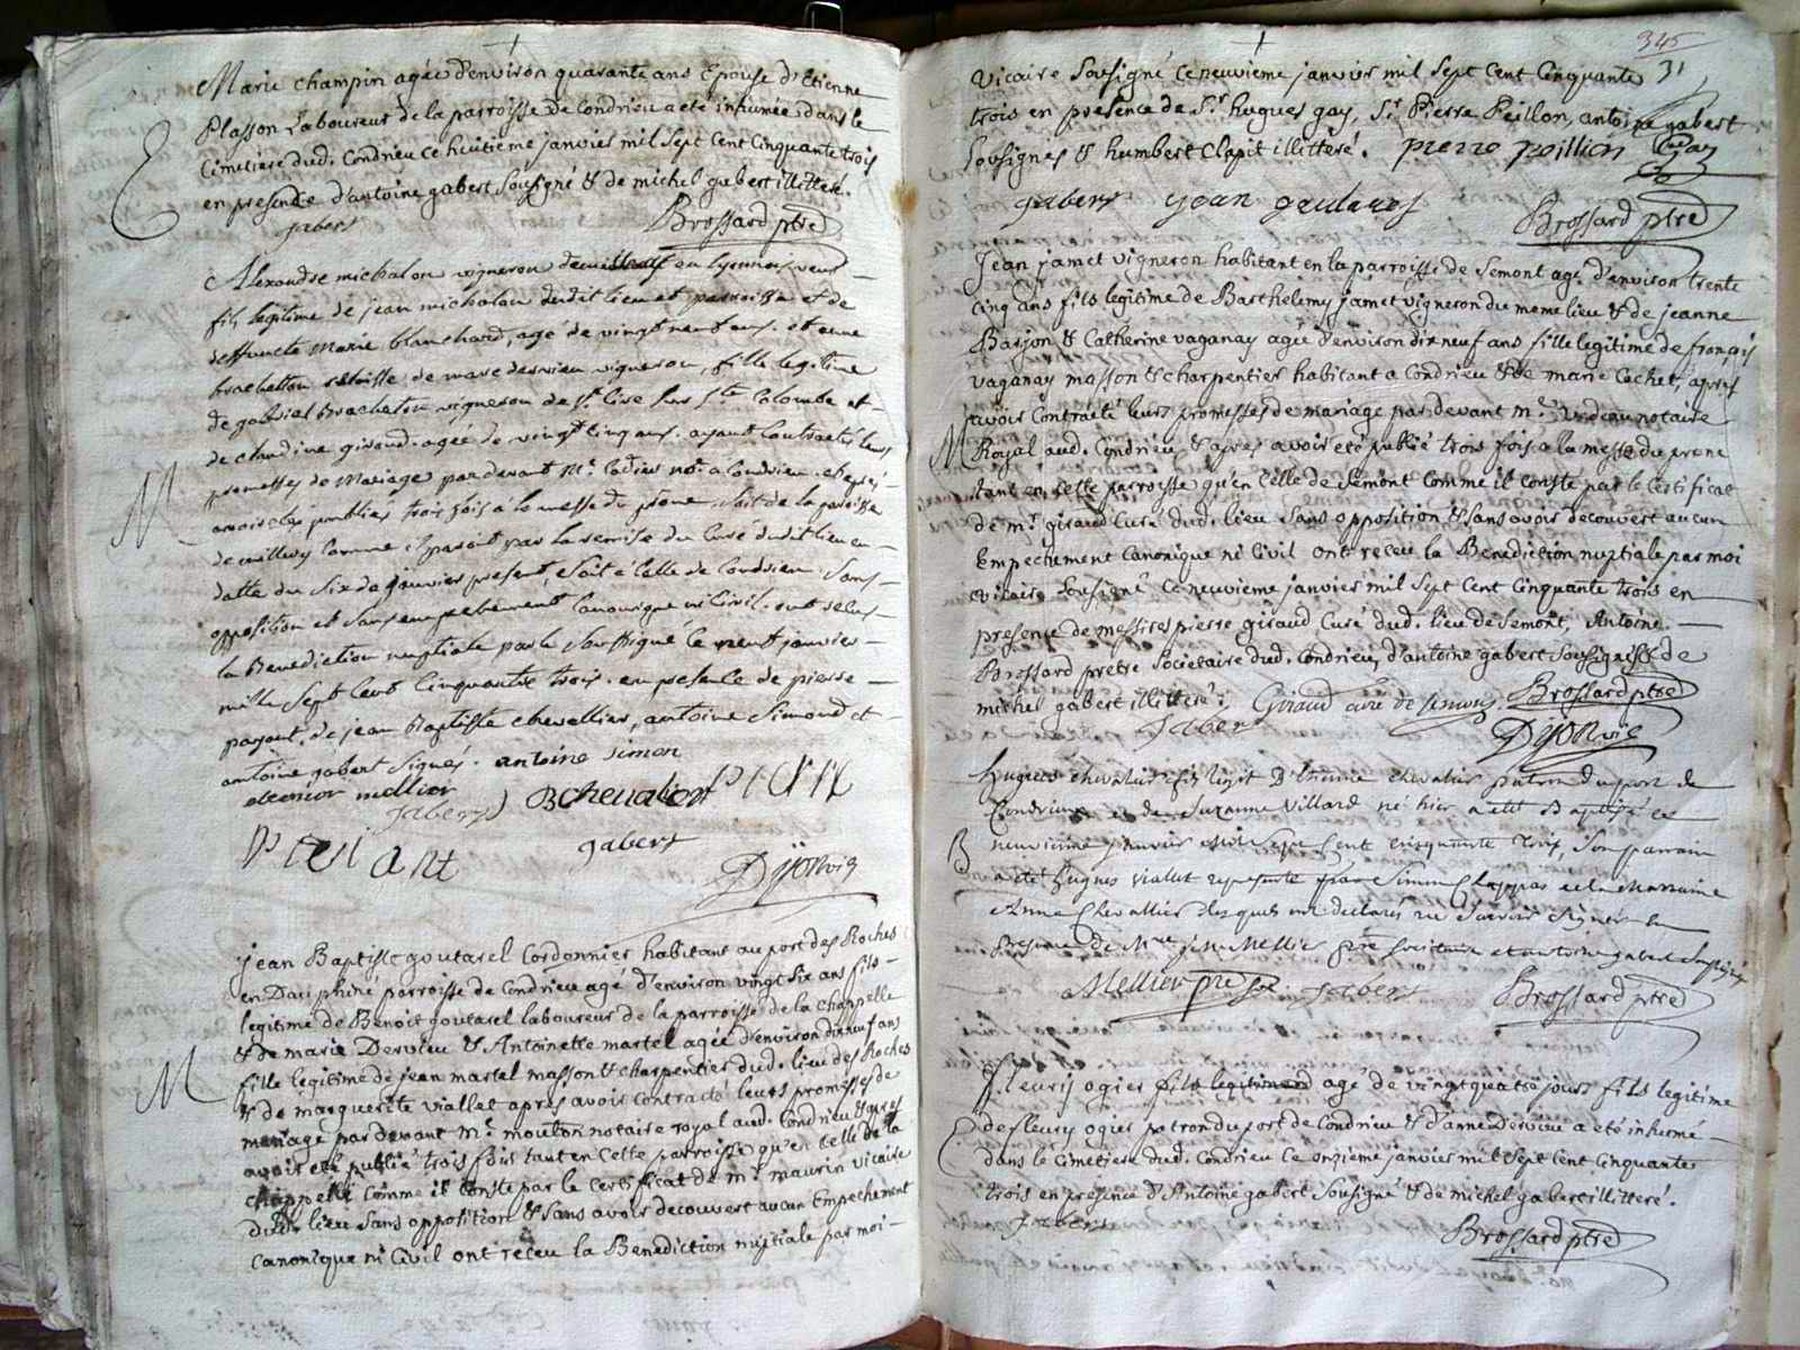 Marie Champin agée d'environ quarante ans Epouse d'Etienne
Plasson Laboureur de la parroisse de Condrieu a eté inhumée dans le
Cimetiere dud. Condrieu ce huitieme janvier mil sept cent Cinquante trois
en presence d'antoine gabert Sousigné & de michel gabert illitteré.
gabert Brossard ptre
Alexandre michalon vigneron de en lyonnois veuf
fils legitime de jean michalon dudit lieu et parroisse et de
deffuncte Marie blanchard, agé de vingt neuf ans. et anne
bracheton relaisse de marc dervieu vigneron, fille legitime
de gabriel bracheton vigneron de St Cire sur Ste Colombe et
de claudine giraud. agée de vingt cinq ans. ayant Contractés leurs
promesses de Mariage pardevant Mr. Cadier nore. a Condrieu. et après
avoir etés publiés trois fois a la messe du prône, soit de la parroisse
de millery Comme il paroit par la remise du Curé dudit lieu en
datte du six de janvier present, soit a Celle de Condrieu. Sans
opposition et sans empechement Canonique ni Civil. ont reçus
la Benediction nuptiale par le soussigné le neuf janvier
mille sept cent Cinquante trois. en presence de pierre
payant, de jean Baptiste chevallier, antoine Simond et
antoine gabert signés. antoine simon
eleonor mellier
gabert B chevalier PIERRE
PEIANT gabert
Dijonvie
jean Baptiste goutarel Cordonnier habitant au port des Roches
en Dauphiné parroisse de Condrieu agé d'environ vingt six ans fils
legitime de Benoit goutarel laboureur de la parroisse de la chappelle
& de marie Dervieu & Antoinette martel agée d'environ dixneuf ans
fille legitime de jean martel masson & charpentier dud. lieu des Roches
& de marguerite viallet apres avoir contracté leurs promesses de
M mariage pardevant mr. mouton notaire royal aud. Condrieu & apres
avoir eté publié trois fois tant en Cette parroisse qu'en Celle de la
chappelle comme il Conste par le certificat de mr. maurin vicaire
dudit lieu sans opposition & sans avoir decouvert aucun Empechement
Canonique ni Civil ont reçeu la Benediction nuptiale par moi
345
31
vicaire Sousigné Ce neuvieme janvier mil sept Cent Cinquante
trois en presence de Sr. hugues gay, Sr. Pierre Peillon, antoine gabert
Sousignés & humbert Clapit illitteré. pierre poillion Gay
gabert jean goutarel Brossard ptre
Jean jamet vigneron habitant en la parroisse de Semont agé d'environ trente
Cinq ans fils legitime de Barthelemy jamet vigneron du meme lieu & de jeanne
Barjon & Catherine vaganay agée d'environ dixneuf ans fille legitime de françois
vaganay masson & charpentier habitant a Condrieu & de marie Cochet, apres
avoir Contracté leurs promesses de mariage par devant mr. notaire
M Royal aud. Condrieu & apres avoir eté publié trois fois a la messe du prone
tant en cette parroisse qu'en Celle de Semont Comme il Conste par le Certificat
de mr. giraud Curé dud. lieu sans opposition & sans avoir decouvert aucun
Empechement Canonique ni Civil ont reçeu la Benediction nuptiale par moi
vicaire Sousigné Ce neuvieme janvier mil sept Cent Cinquante trois en
presence de messires pierre giraud Curé dud. lieu de Semont, Antoine
Brossard prêtre Societaire dud. Condrieu, d'antoine gabert Sousignés & de
michel gabert illitteré. Giraud curé de semons Brossard ptre
gabert Dijonvie
hugues chevalier fils legit. D'Etienne chevalier patron du port de
Condrieu et de Suzanne Villard né hier a eté Baptisé ce
B neuvieme janvier mil sept Cent cinquante trois, son parrain
a eté hugues viallet representé par Simon Clappas et la marraine
Anne Chevallier lesquels ont declarés ne sçavoir signer en
presence de Mre. Mellier ptre Societaire et antoine gabert soussignés
Mellier ptre soc gabert Brossard ptre
fleury ogier fils legitime agé de vingt quatre jours fils legitime
de fleury ogier patron du port de Condrieu & d'anne Dervieu a eté inhumé
dans le Cimetiere dud. Condrieu Ce onzieme janvier mil sept Cent Cinquante
trois en presence d'Antoine gabert Sousigné & de michel gabert illitteré.
gabert Brossard ptre